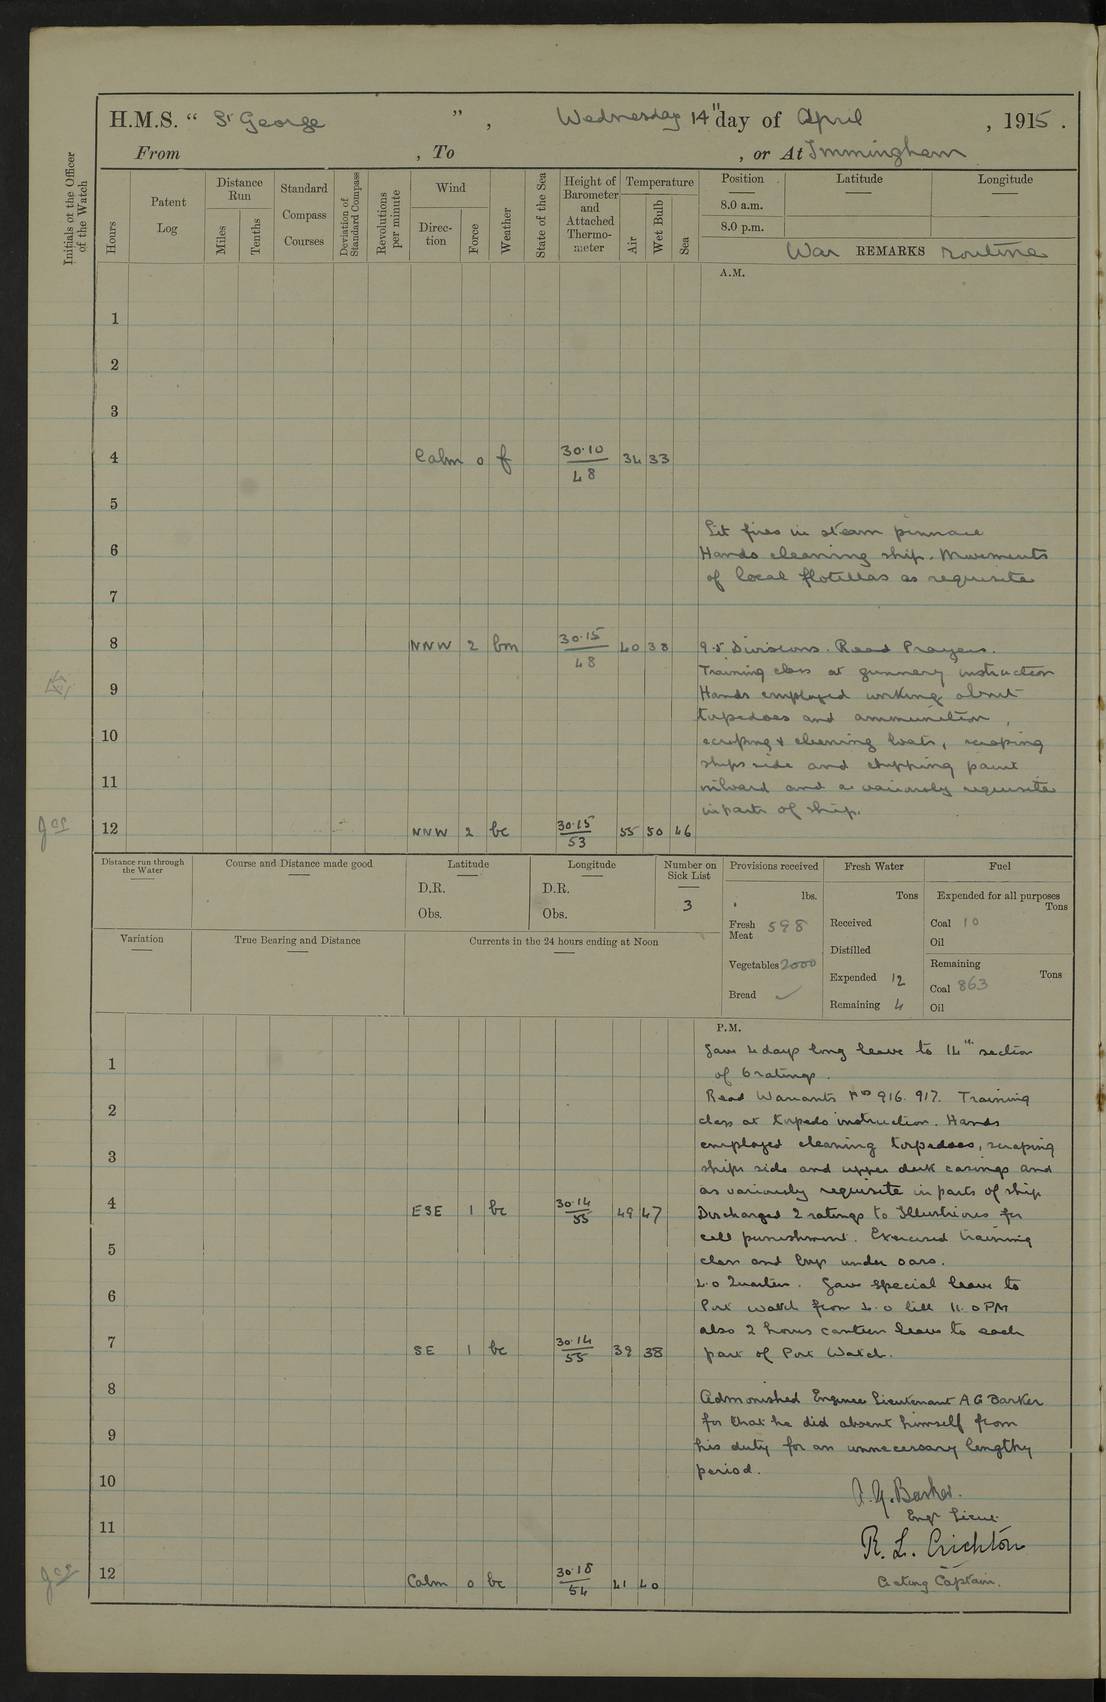 H.M.S. “ St George ”, Wednesday 14th day of April, 1915.
From , To , or At Immingham
Initials of the Officer of the Watch
Hours
Patent Log
Distance Run
Miles
Tenths
Standard Compass Courses
Deviation of Standard Compass
Revolutions per minute
Wind
Direction
Force
Weather
State of the Sea
Height of Barometer and Attached Thermometer
Temperature
Air
Wet Bulb
Sea
Position
8.0 a.m.
8.0 p.m.
Latitude
Longitude
War REMARKS routine
A.M.
1
2
3
4 Calm 0 f 30.10 48 34 33
5
Lit fires in steam pinnace
6 Hands cleaning ship. Movements
of local flotillas as requisite
7
8 NNW 2 bm 30.15 48 40 38 9.5 Divisions. Read Prayers.
Training class at gunnery instruction
9 Hands employed working about
torpedoes and ammunition,
10 scraping & cleaning boats, scraping
ships side and chipping paint
11 inboard and as variously requisite
in parts of ship.
12 NNW 2 bc 30.15 53 55 50 46
Distance run through the Water
Course and Distance made good
Latitude
D.R.
Obs.
Longitude
D.R.
Obs.
Number on Sick List
3
Provisions received
lbs.
Fresh Meat 598
Vegetables 2000
Bread ✓
Fresh Water
Tons
Received
Distilled
Expended 12
Remaining 4
Fuel
Expended for all purposes
Tons
Coal 10
Oil
Remaining
Tons
Coal 863
Oil
Variation
True Bearing and Distance
Currents in the 24 hours ending at Noon
P.M.
Gave 4 days long leave to 14th section
1 of 6 ratings.
Read Warrants Nos 916. 917. Training
2 class at torpedo instruction. Hands
employed cleaning torpedoes, scraping
3 ships side and upper deck casings and
as variously requisite in parts of ship
4 ESE 1 bc 30.14 55 49 47 Discharged 2 ratings to Illustrious for
cell punishment. Exercised training
5 class and boys under oars.
4.0 Quarters. Gave special leave to
6 Port watch from 4.0 till 11.0 PM
also 2 hours canteen leave to each
7 SE 1 bc 30.14 55 39 38 part of Port Watch.
8 Admonished Engineer Lieutenant A G Barker
for that he did absent himself from
9 his duty for an unnecessary lengthy
period.
10 A. G. Barker.
Engr Lieut.
11 R. L. Crichton
12 Calm 0 bc 30.18 54 41 40 Acting Captain.